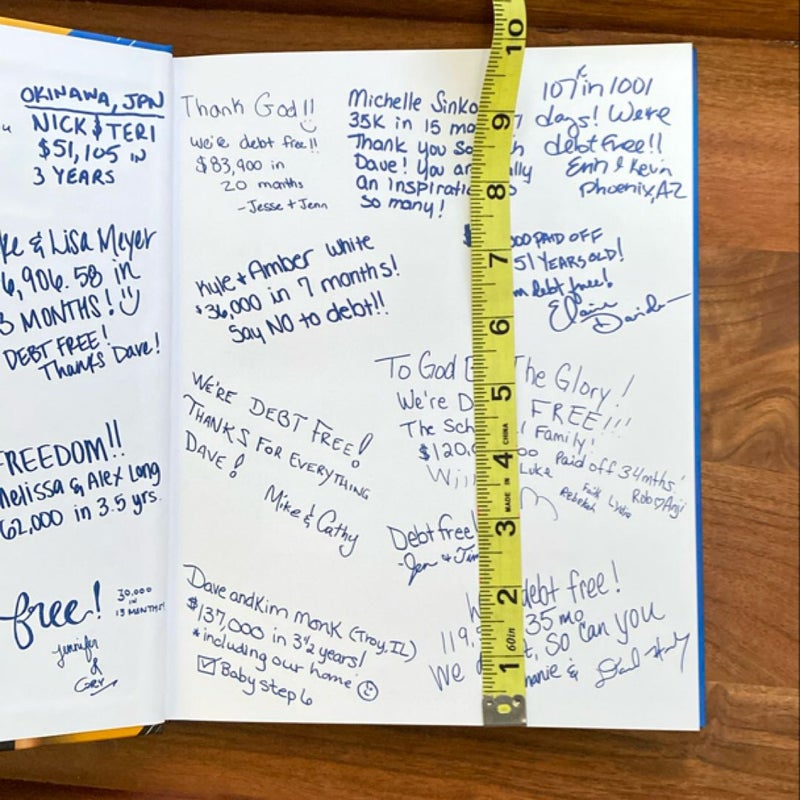 OKINAWA, JPN
NICK & TERI
$51,105 IN
3 YEARS
& Lisa Meyer
6,906.58 in
3 MONTHS!
DEBT FREE!
Thanks Dave!
FREEDOM!!
Melissa & Alex Long
62,000 in 3.5 yrs.
free!
30,000
IN
13 MONTHS!
Jennifer
&
Cory
Thank God!!
We're debt free!!
$83,900 in
20 months
-Jesse + Jenn
Michelle Sinko
35K in 15 mo
Thank you So
Dave! You ar
an inspirati
so many!
107K in 1001
days! We're
debt free!!
Erin & Kevin
Phoenix, AZ
Kyle + Amber White
$36,000 in 7 months!
Say NO to debt!!
000 PAID OFF
51 YEARS OLD!
debt free!
Elaine
WE'RE DEBT FREE!
THANKS FOR EVERYTHING
DAVE!
Mike & Cathy
To God The Glory!
We're D FREE!!!
The Sch Family!
$120, Paid off 34mths!
Luke
Rebekah Faith Lydia Rob ♡ Anji
Debt free!
-Jen + Jim
Dave and Kim Monk (Troy, IL)
$137,000 in 3½ years!
*including our home
☑ Baby step 6
debt free!
119. 35 mo
We t, So can you
&
10
9
8
7
6
5
4
3
2
1
MADE IN CHINA
60in